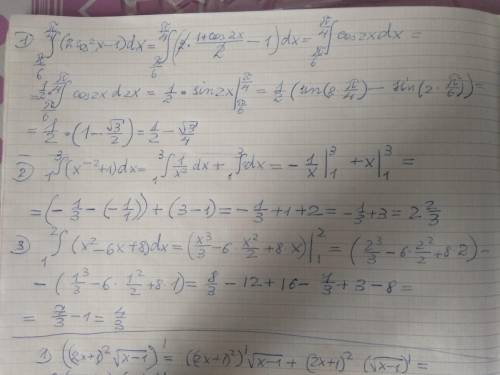 1) ∫_{π/6}^{π/4} (2cos²x-1)dx = ∫_{π/6}^{π/4} (2·(1+cos2x)/2 - 1)dx = ∫_{π/6}^{π/4} cos2xdx =
= 1/2 ∫_{π/6}^{π/4} cos2x d2x = 1/2 · sin2x |_{π/6}^{π/4} = 1/2 (sin(2·π/4) - sin(2·π/6)) =
= 1/2 · (1 - √3/2) = 1/2 - √3/4
2) ∫_1^3 (x⁻²+1)dx = ∫_1^3 1/x² dx + ∫_1^3 dx = - 1/x |_1^3 + x |_1^3 =
= (-1/3 - (-1/1)) + (3-1) = -1/3 + 1 + 2 = -1/3 + 3 = 2 2/3
3) ∫_1^2 (x²-6x+8)dx = (x³/3 - 6·x²/2 + 8·x) |_1^2 = (2³/3 - 6·2²/2 + 8·2) -
- (1³/3 - 6·1²/2 + 8·1) = 8/3 - 12 + 16 - 1/3 + 3 - 8 =
= 7/3 - 1 = 4/3
1) ((2x+1)²√(x-1))' = ((2x+1)²)'√(x-1) + (2x+1)² (√(x-1))' =